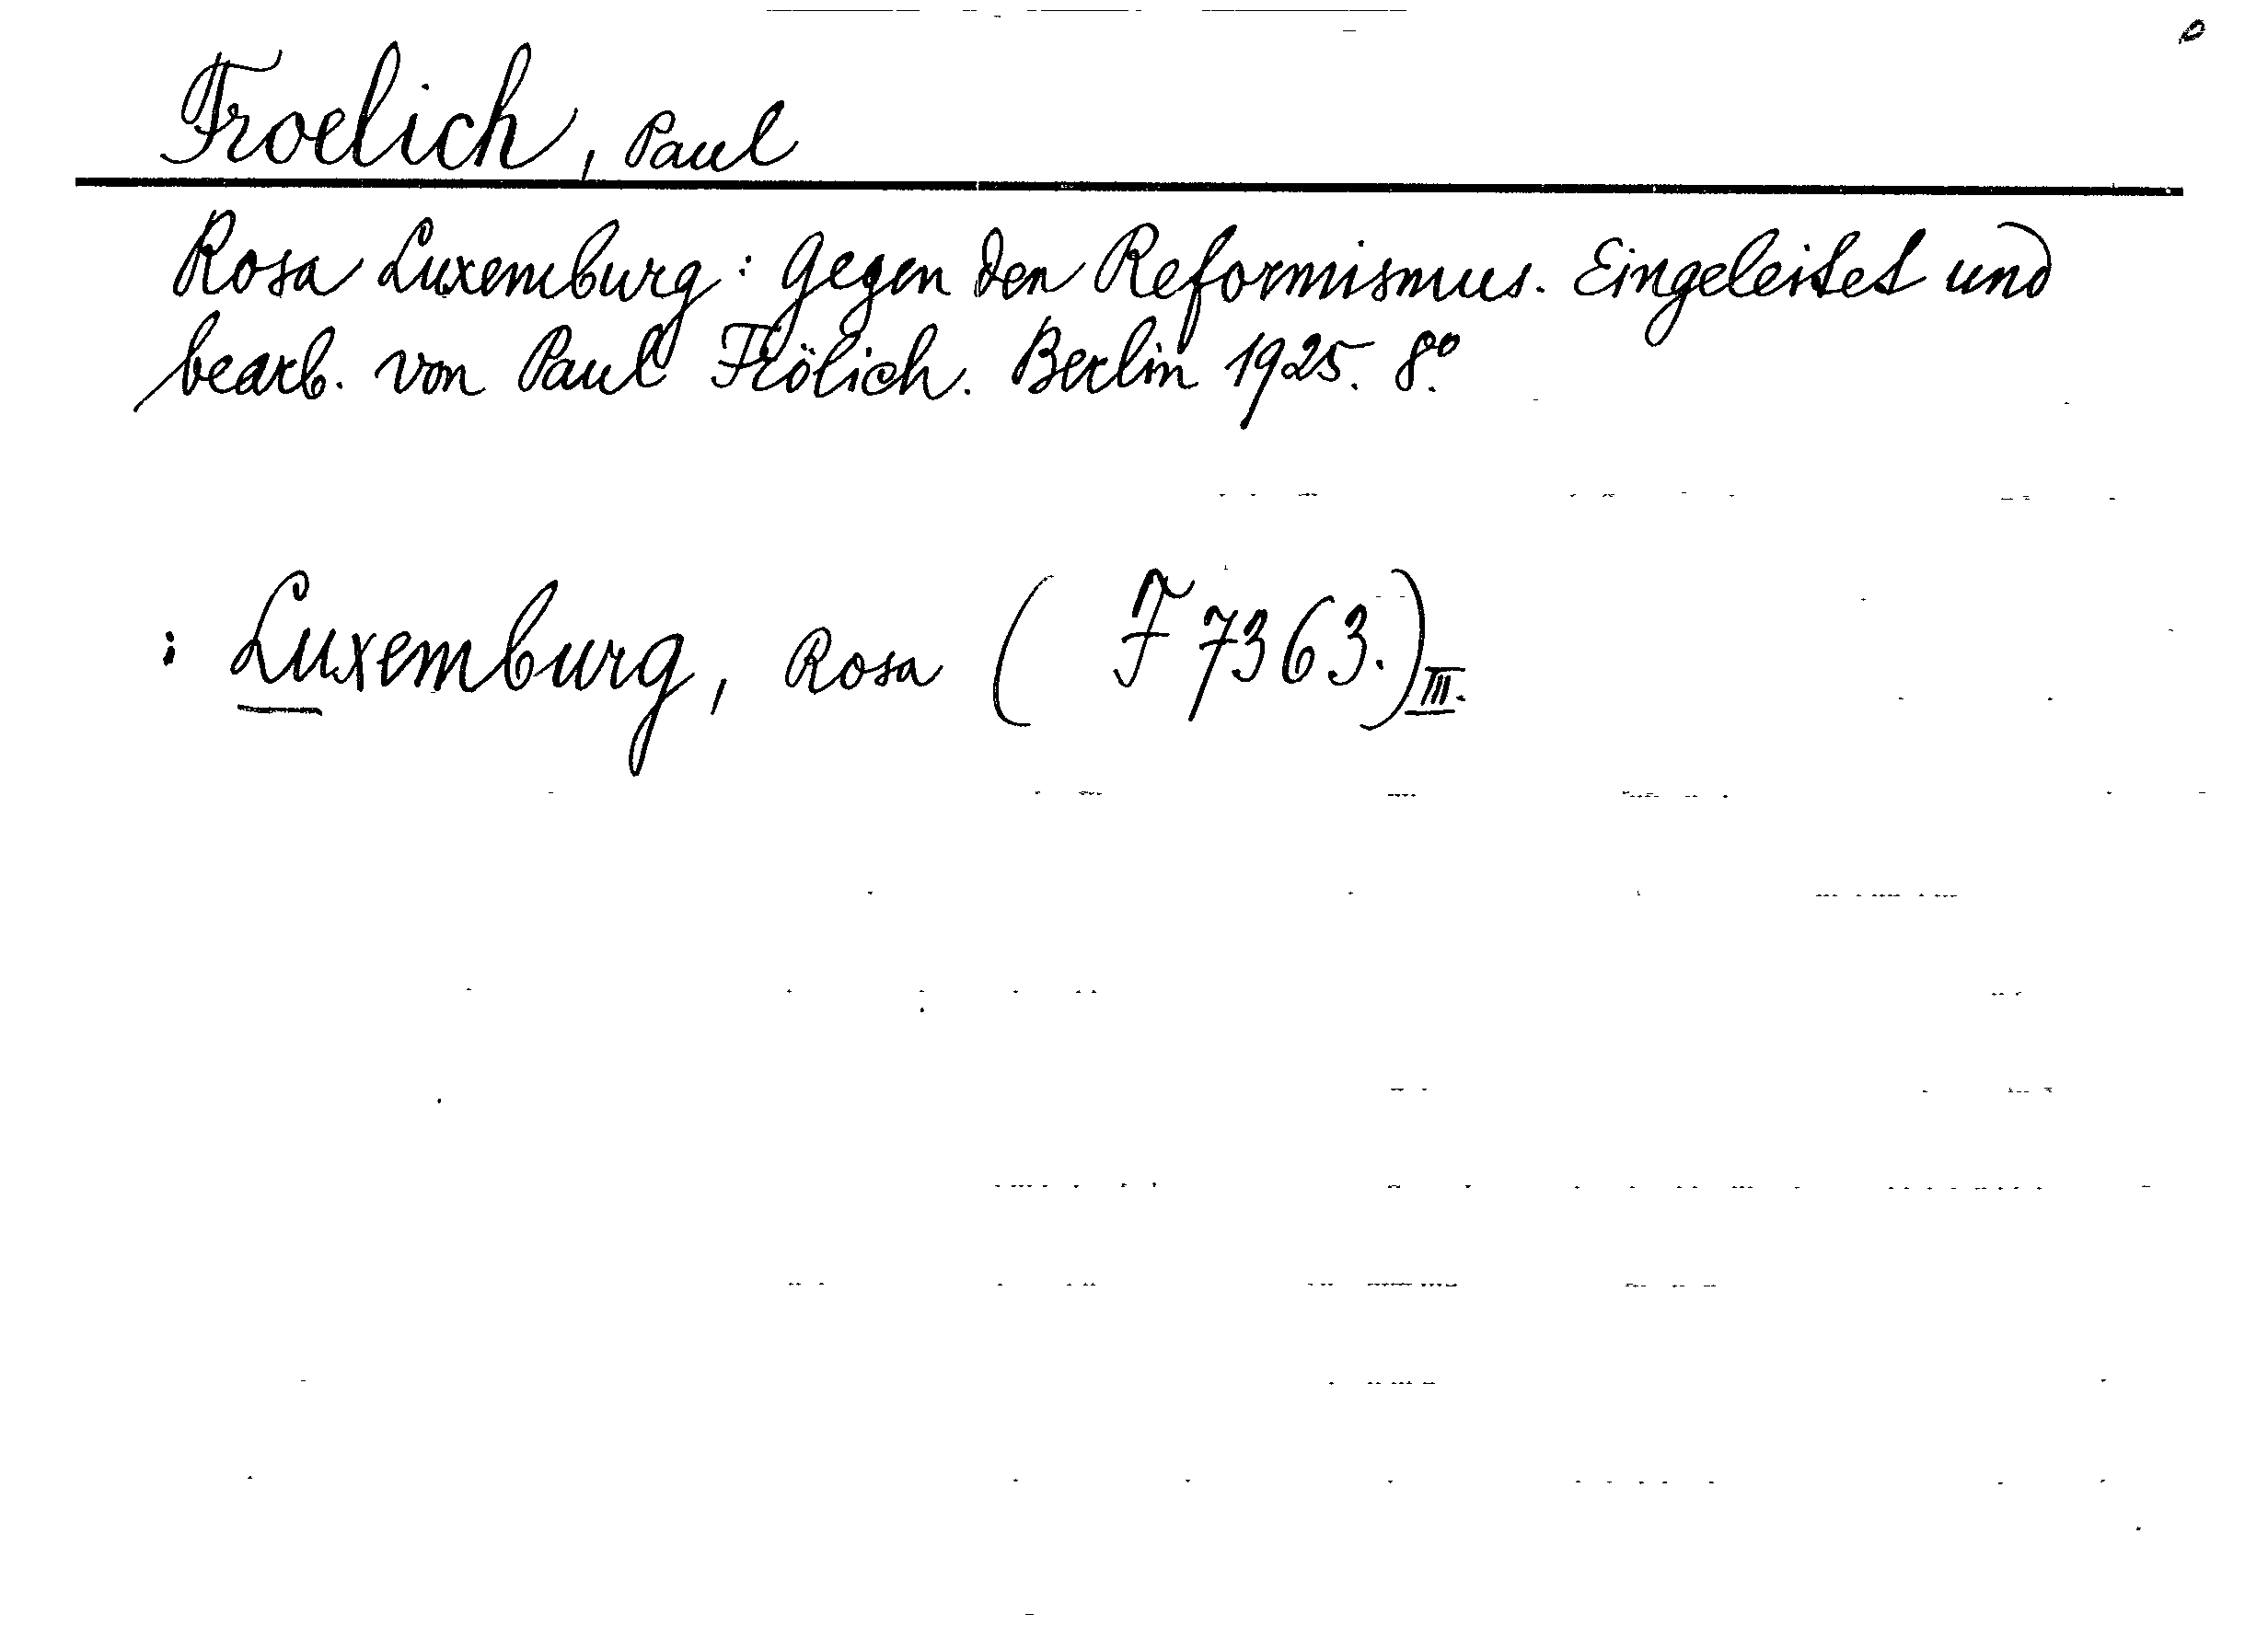 Froelich, Paul
Rosa Luxemburg: Gegen den Reformismus. Eingeleitet und
bearb. von Paul Frölich. Berlin 1925. 8°.
: Luxemburg, Rosa ( F 7363.) III.